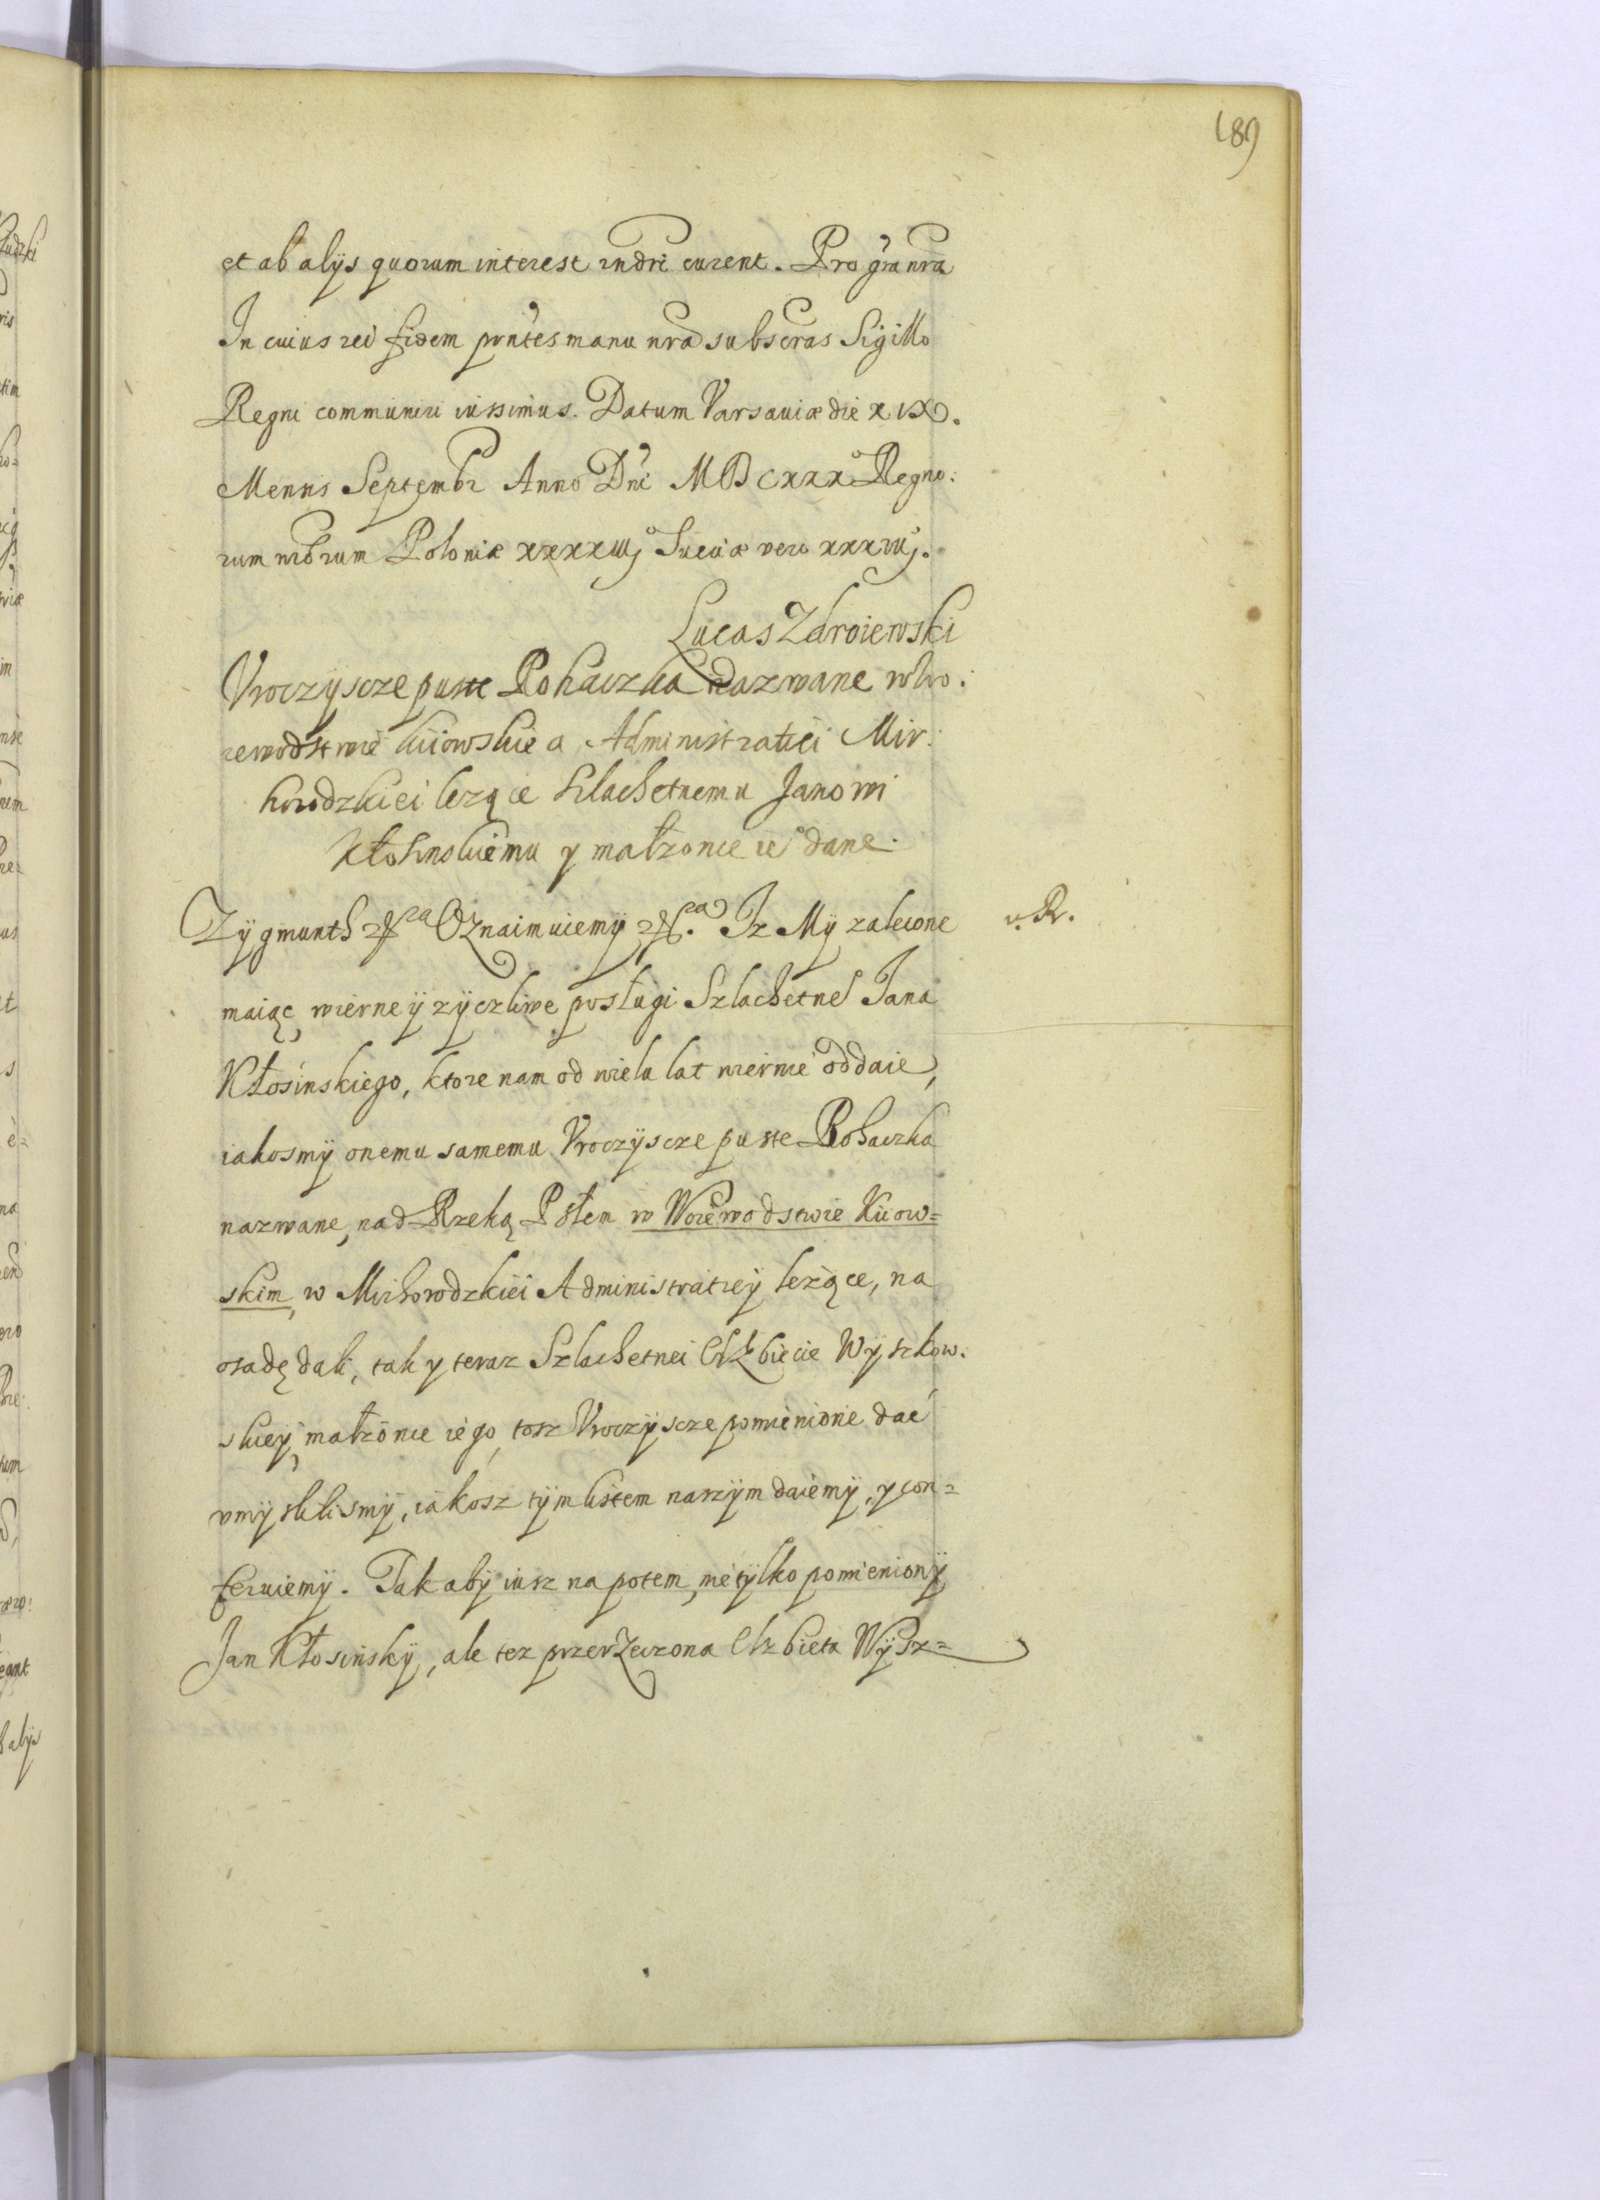 189
et ab alÿs quorum interest rndri curent. Pro gra nra
In cuius rei fidem pnntes manu nra subscras Sigillo
Regni communiri iussimus. Datum Varsauiæ die XIX.
Mensis Septembr Anno Dni MDCXXX Regno:
rum nrorum Poloniæ xxxxiij Sueciæ vero xxxvij.
Lucas Zdroiewski
Vroczÿscze puste Rohaczka nazwane w Wo:
iewodstwie kiiowskie a Administratiei Mir:
horodzkiei lezące szlachetnemu Janowi
Kłosinskiemu y małzonce ie dane.
Zÿgmunth Oznaimuiemÿ Iz Mÿ zalecone
v. R.
maiąc, wierne ÿ zÿczliwe posługi Szlachetne Jana
Kłosinskiego, ktore nam od wielu lat wiernie oddaie,
iakosmÿ onemu samemu Vroczÿscze puste Rohaczka
nazwane, nad Rzeką Psłem w Woiewodstwie Kiiow=
skim, w Mirhorodzkiei Administratieÿ lezące, na
osadę dali, tak y teraz Szlachetnei Elzbiecie Wyszkow:
skieÿ, małzonce iego, tosz Vroczÿscze pomienione dać
vmÿslilismÿ, iakosz tÿm listem naszÿm daiemÿ, y con=
feruiemÿ. Tak abÿ iusz na potem, nie tÿlko pomienionÿ
Jan Kłosinskÿ, ale tez przerzeczona Elzbieta Wÿsz=